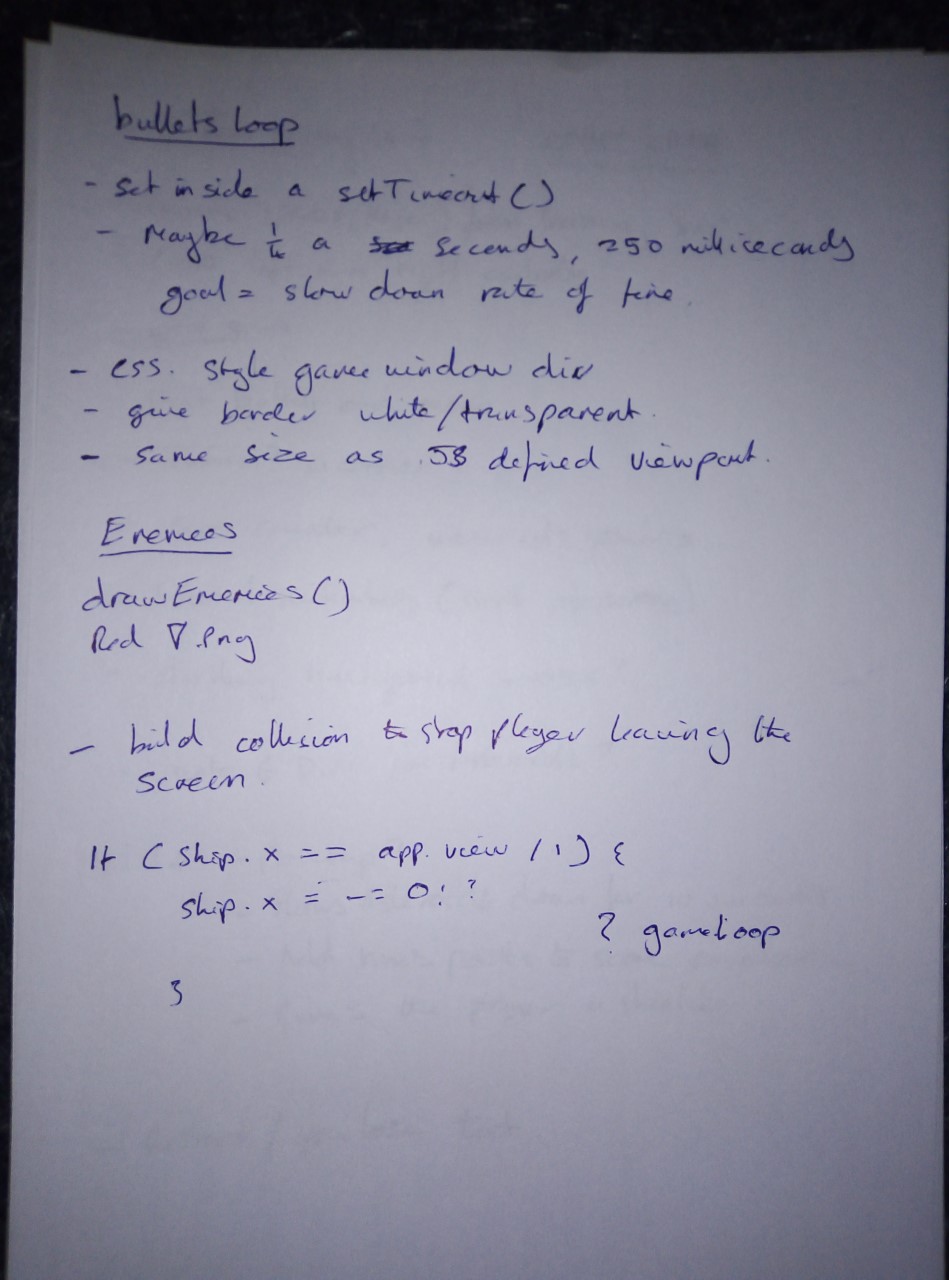 bullets loop
- Set inside a setTimeout()
- Maybe 1/4 a seconds, 250 milliseconds
goal = slow down rate of fire.
- css. style game window div
- give border white/transparent.
- same size as JS defined viewport.
Enemies
drawEnemies()
Red ▽.png
- build collision to stop player leaving the
screen.
If ( ship.x == app.view / 1 ) {
ship.x = -= 0; ?
? gameloop
}